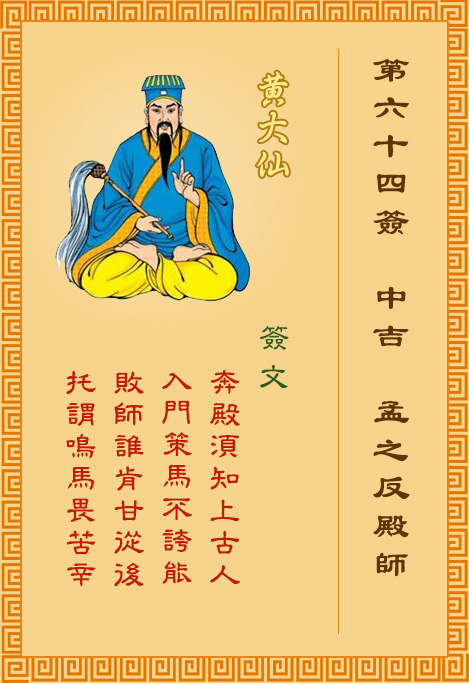 第六十四簽 中吉 孟之反殿師
黃大仙
簽文
奔殿須知上古人
入門策馬不誇能
敗師誰肯甘從後
托謂鳴馬畏苦辛